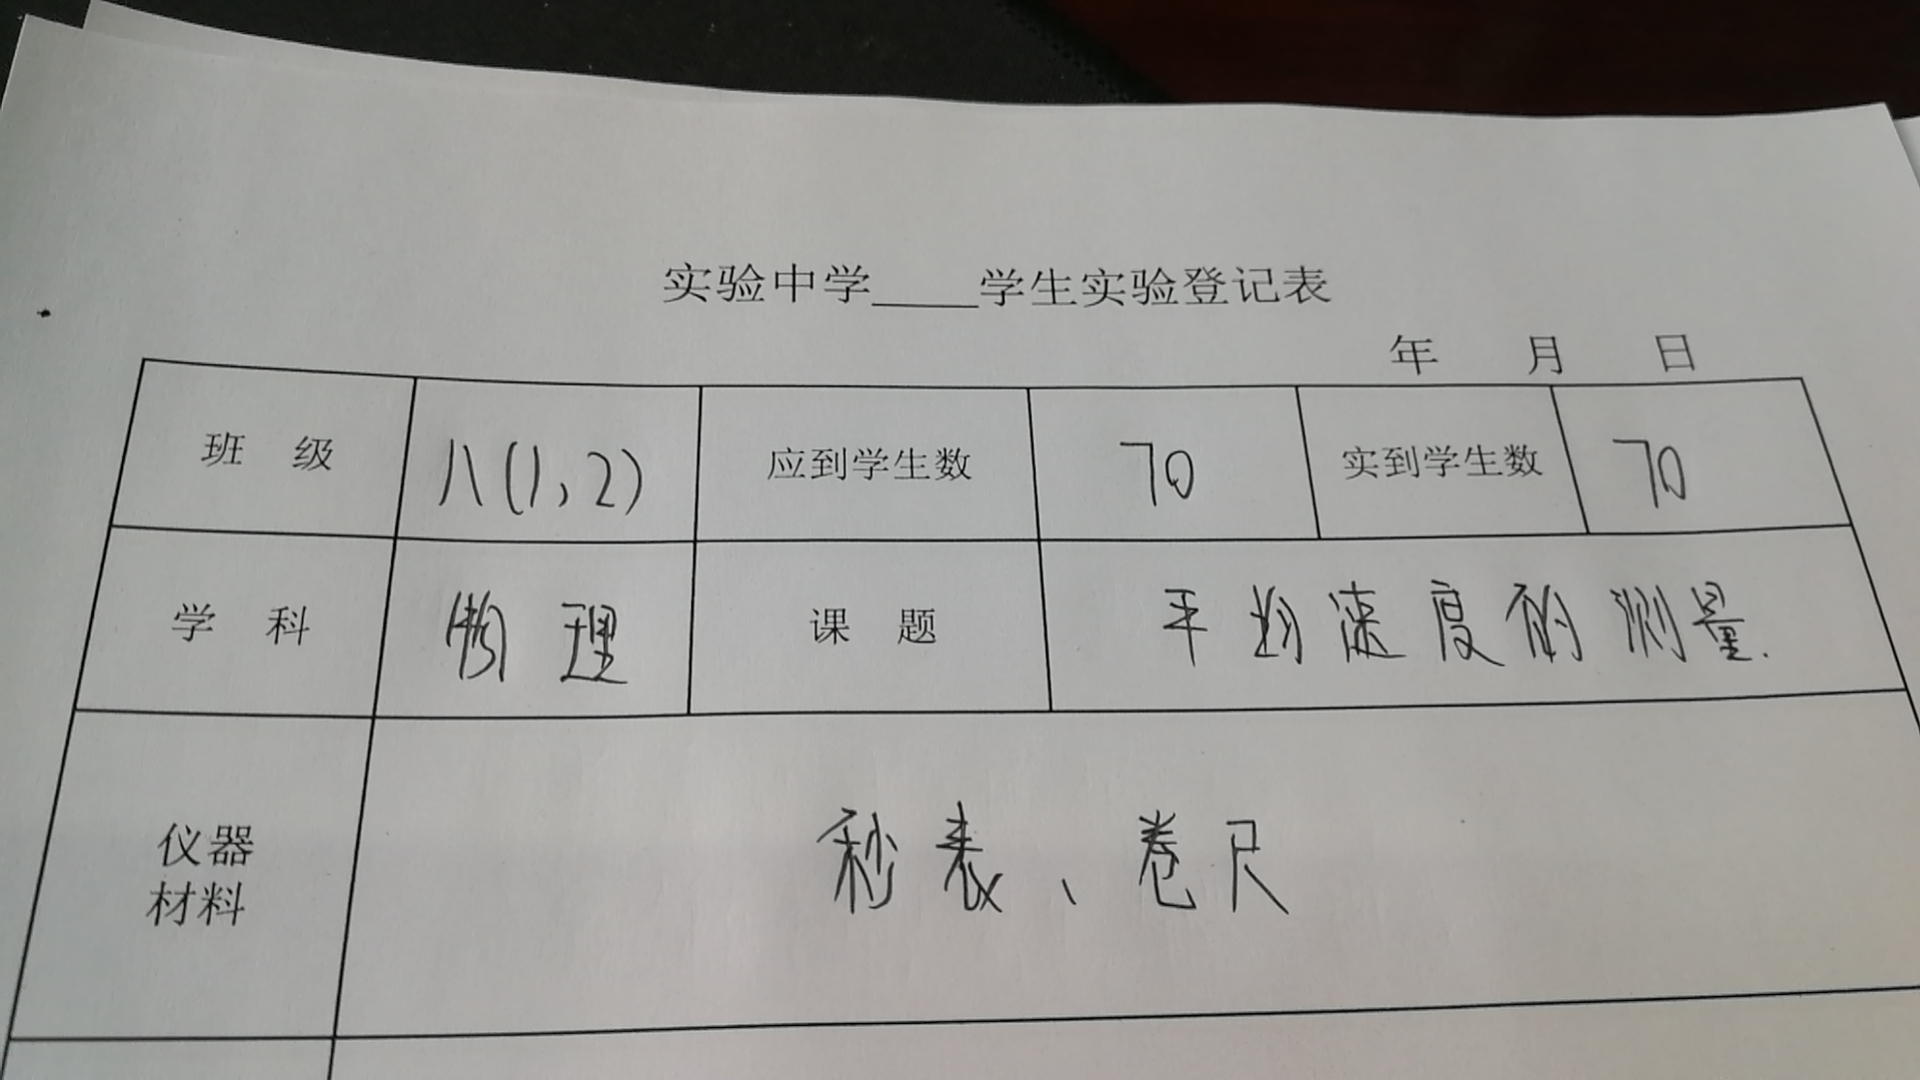 实验中学____学生实验登记表
年 月 日
班 级 八(1,2) 应到学生数 70 实到学生数 70
学 科 物理 课 题 平均速度的测量.
仪器 秒表、卷尺
材料